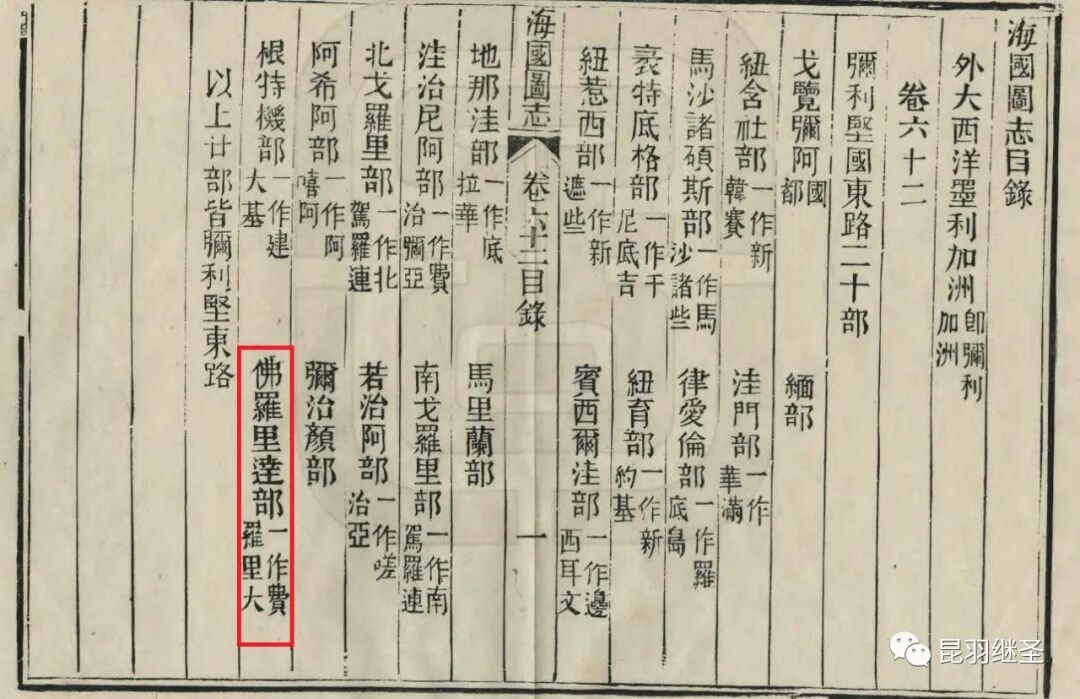 海國圖志目錄
外大西洋墨利加洲即彌利加洲
卷六十二
彌利堅國東路二十部
戈覽彌阿國都 緬部
紐含社部一作新韓賽 洼門部一作華滿
馬沙諸碩斯部一作馬沙諸些 律愛倫部一作羅底島
衮特底格部一作干尼底吉 紐育部一作新約基
紐惹西部一作新遮些 賓西爾洼部一作邊西耳文
海國圖志 卷六十二目錄 一
地那洼部一作底拉華 馬里蘭部
洼治尼阿部一作費治彌亞 南戈羅里部一作南駕羅連
北戈羅里部一作北駕羅連 若治阿部一作嗟治亞
阿希阿部一作阿嘻阿 彌治顏部
根特機部一作建大基 佛羅里達部一作費羅里大
以上廿部皆彌利堅東路
昆羽继圣